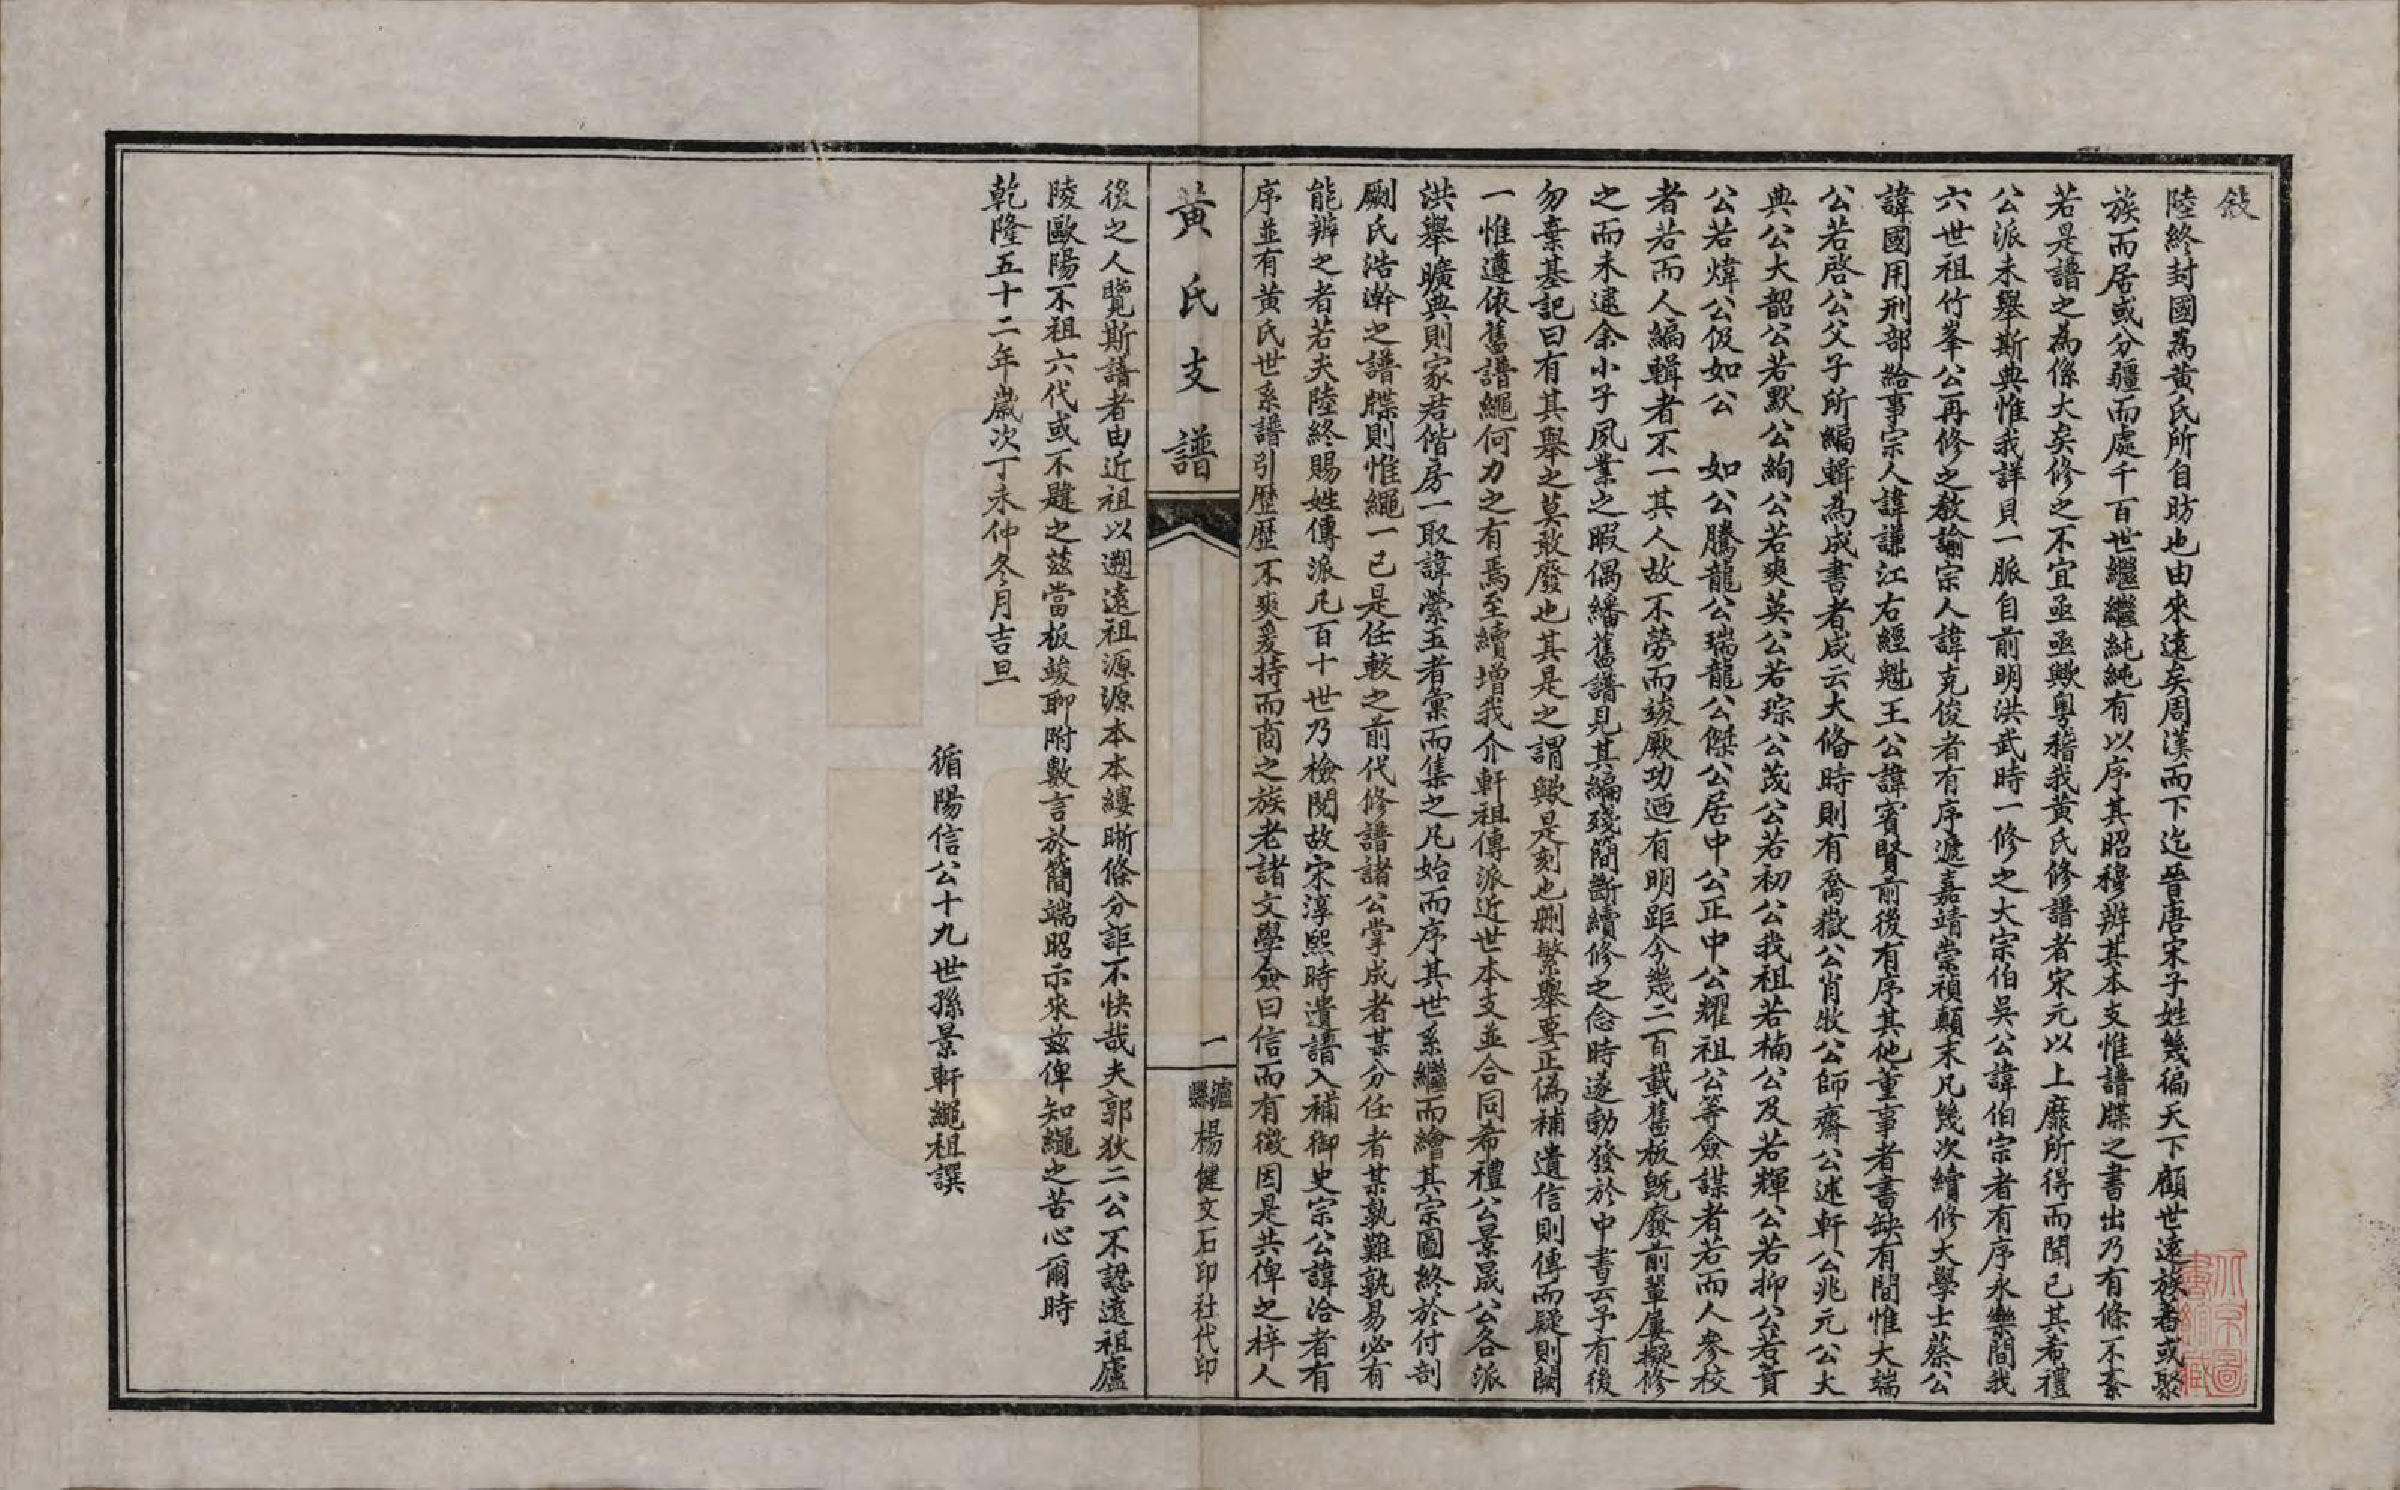 敍
陸終封國為黃氏所自昉也由來遠矣周漢而下迄晉唐宋子姓幾徧天下顧世遠族者或聚
族而居或分疆而處千百世繼繼純純有以序其昭穆辨其本支惟譜牒之書出乃有條不紊
若是譜之為係大矣修之不宜亟亟歟粵稽我黃氏修譜者宋元以上靡所得而聞已其希禮
公派未舉斯典惟我詳貝一脈自前明洪武時一修之大宗伯吳公諱伯宗者有序永樂間我
六世祖竹峯公再修之教諭宗人諱克俊者有序遞嘉靖崇禎顛末凡幾次續修大學士蔡公
諱國用刑部給事宗人諱謙江右經魁王公諱賓賢前後有序其他董事者書缺有間惟大端
公若啓公父子所編輯為成書者咸云大俻時則有喬嶽公肖牧公師齋公述軒公兆元公大
典公大韶公若默公絢公若爽英公若琮公茂公若初公我祖若楠公及若輝公若抑公若賁
公若煒公伋如公 如公騰龍公瑞龍公傑公居中公正中公耀祖公等僉謀者若而人參校
者若而人編輯者不一其人故不勞而竣厥功迺有明距今幾二百載舊板既廢前輩屢擬修
之而未逮余小子夙業之暇偶繙舊譜見其編殘簡斷續修之念時遂勃發於中書云予有後
勿棄基記曰有其舉之莫敢廢也其是之謂歟是刻也刪繁舉要正偽補遺信則傳而疑則闕
一惟遵依舊譜繩何力之有焉至續增我介軒祖傳派近世本支並合同希禮公景晟公各派
洪舉曠典則家君偕房一取諱縈五者彙而集之凡始而序其世系繼而繪其宗圖終於付剖
劂氏浩瀚之譜牒則惟繩一己是任較之前代修譜諸公掌成者某分任者某孰難孰易必有
能辨之者若夫陸終賜姓傳派凡百十世乃檢閱故宋淳熙時遺譜入補御史宗公諱洽者有
序並有黃氏世系譜引歷歷不爽爰持而商之族老諸文學僉曰信而有徵因是共俾之梓人
黃氏支譜
一
瀘縣楊健文石印社代印
後之人覽斯譜者由近祖以遡遠祖源源本本縷晰條分詎不快哉夫郭狄二公不認遠祖廬
陵歐陽不祖六代或不韙之茲當板竣聊附數言於簡端昭示來茲俾知繩之苦心爾時
乾隆五十二年歲次丁未仲冬月吉旦
循陽信公十九世孫景軒繩祖譔